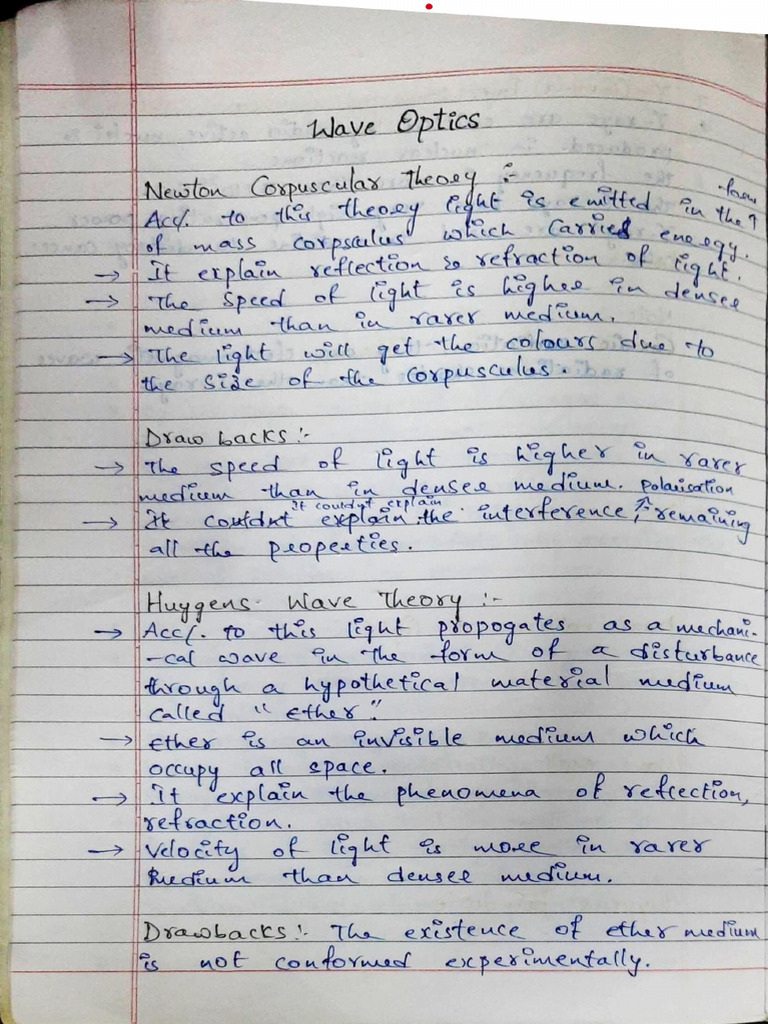 Wave Optics
Newton Corpuscular Theory :-
Acc/. to this theory light is emitted in the form
of mass corpsculus which carried energy.
→ It explain reflection & refraction of light.
→ The speed of light is higher in denser
medium than in rarer medium.
→ The light will get the colours due to
the size of the corpusculus.
Draw backs :-
→ The speed of light is higher in rarer
medium than in denser medium. polarisation
it couldn't explain
→ It couldnt explain the interference, ^ remaining
all the properties.
Huygens Wave Theory :-
→ Acc/. to this light propogates as a mechani-
-cal wave in the form of a disturbance
through a hypothetical material medium
called "Ether".
→ Ether is an invisible medium which
occupy all space.
→ It explain the phenomena of reflection,
refraction.
→ Velocity of light is more in rarer
medium than denser medium.
Drawbacks :- The existence of ether medium
is not conformed experimentally.